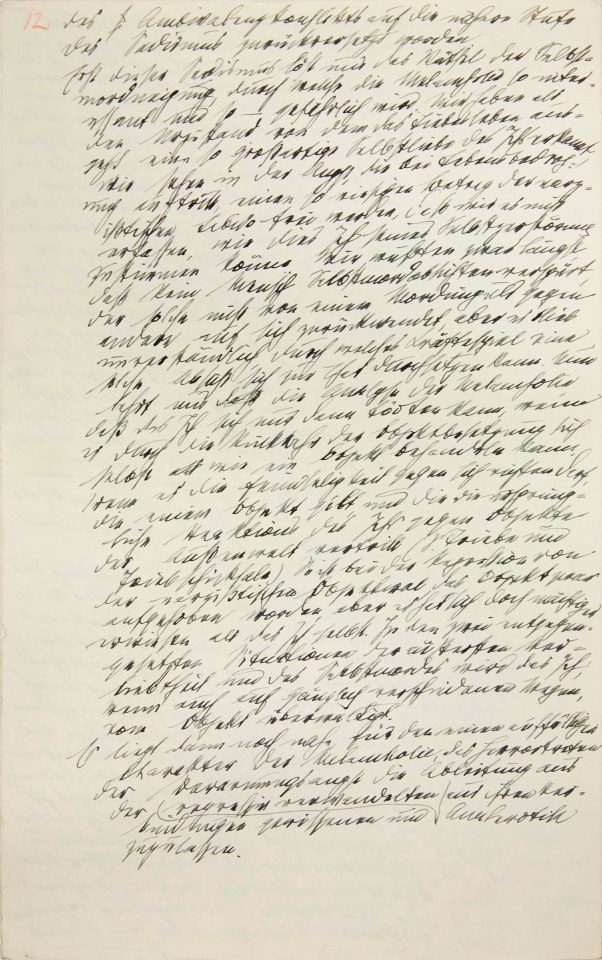 12
des Ambivalenzkonflikts auf die nähere Stufe
des Sadismus zurückversetzt worden.
Erst dieser Sadismus löst uns das Rätsel der Selbst-
mordneigung, durch welche die Melancholie so inter-
essant und so – gefährlich wird. Wir haben als
den Urzustand von dem das Liebesleben aus-
geht eine so großartige Selbstliebe des Ich erkannt
wir sehen in der Angst, die bei Lebensbedroh-
ung auftritt einen so riesigen Betrag der narz-
ißtischen Libido frei werden, daß wir es nicht
erfassen, wie dies Ich seiner Selbstzerstörung
zustimmen könne. Wir wußten zwar längst
daß kein Mensch Selbstmordabsichten verspürt,
der solche nicht von einem Mordimpuls gegen
andere auf sich zurückwendet, aber es blieb
unverständlich durch welches Kräftespiel eine
solche Absicht sich zur That durchsetzen kann. Nun
lehrt uns die Analyse der Melancholie
daß das Ich sich nur dann tödten kann, wenn
es durch die Rückkehr der Objektbesetzung sich
selbst wie ein Objekt behandeln kann,
wenn es die Feindseligkeit gegen sich richten darf,
die einem Objekt gilt und die die ursprüng-
liche Reaktion des Ich gegen Objekte
der Außenwelt vertritt (S. Triebe und
Triebschicksale) So ist bei der Regression von
der narzißtischen Objektwahl das Objekt zwar
aufgehoben worden aber es hat sich doch mächtiger
erwiesen als das Ich selbst. In den zwei entgegen-
gesetzten Situationen der äußersten Ver-
liebtheit und des Selbstmordes wird das Ich,
wenn auch auf gänzlich verschiedenen Wegen,
vom Objekt überwältigt.
Es liegt dann noch nahe für den einen auffälligen
Charakter der Melancholie, das Hervortreten
der Verarmungsangst die Ableitung aus
der (regressiv verwandelten) aus ihren Ver-
bindungen gerissenen und Analerotik
zuzulassen.